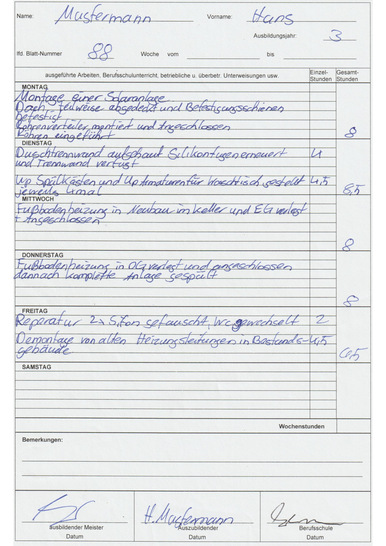 Name: Mustermann Vorname: Hans
Ausbildungsjahr: 3
lfd. Blatt-Nummer 88 Woche vom bis
ausgeführte Arbeiten, Berufsschulunterricht, betriebliche u. überbetr. Unterweisungen usw. Einzel-Stunden Gesamt-Stunden
MONTAG
Montage einer Solaranlage
Dach teilweise abgedeckt und Befestigungsschienen
befestigt
Rohrenverteiler montiert und Angeschlossen
Rohren eingeführt 8
DIENSTAG
Duschtrennwand aufgebaut Silikonfugen erneuert 4
und Trennwand verfugt
Up Spülkästen und Up Armaturen für Waschtisch gestellt 4,5
jeweils 4 mal 8,5
MITTWOCH
Fußbodenheizung in Neubau im Keller und EG verlegt
+ Angeschlossen
8
DONNERSTAG
Fußbodenheizung in OG verlegt und angeschlossen
dannach komplette Anlage gespült
8
FREITAG
Reperatur 2x Sifon getauscht, Wc gewechselt 2
Demontage von alten Heizungsleitungen in Bestands- 4,5
gebäude 6,5
SAMSTAG
Wochenstunden
Bemerkungen:
H. Mustermann
ausbildender Meister Auszubildender Berufsschule
Datum Datum Datum